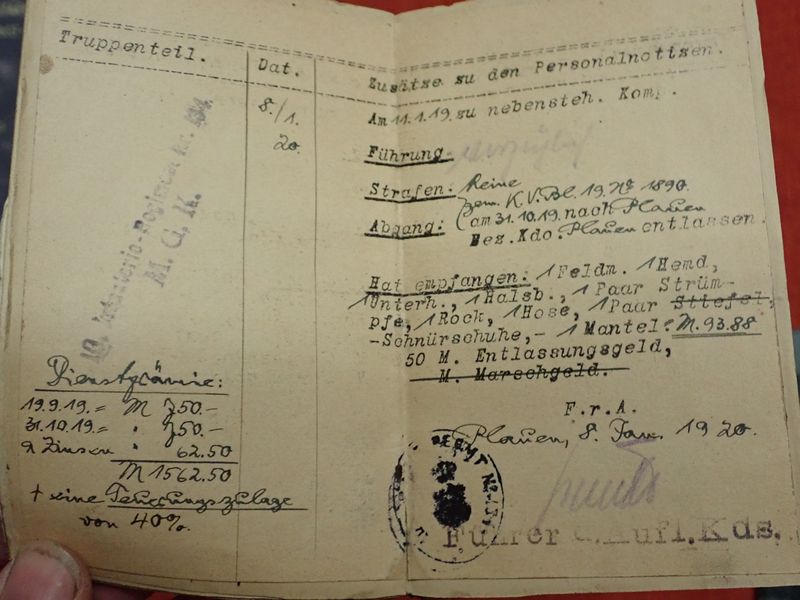 Truppenteil.
Dat.
8./1.
20.
10. Infanterie-Regiment Nr.
M. G. K.
Dienstprämie:
19.9.19. = M 750.-
31.10.19. = " 750.-
a Zinsen " 62.50
M 1562.50
+ eine Teuerungszulage
von 40%.
Zusätze zu den Personalnotizen.
Am 11.1.19. zu nebensteh. Komp.
Führung. vorzüglich
Strafen: Keine
Abgang: gem. K.V.Bl. 19. No 1890.
am 31.10.19. nach Plauen
Bez.Kdo. Plauen entlassen.
Hat empfangen: 1 Feldm. 1 Hemd,
1 Unterh., 1 Halsb., 1 Paar Strüm-
pfe, 1 Rock, 1 Hose, 1 Paar Stiefel,
-Schnürschuhe,- 1 Mantel: M. 93.88
50 M. Entlassungsgeld,
M. Marschgeld.
F.r.A.
Plauen, 8. Jan. 1920.
Führer d. Aufl. Kds.